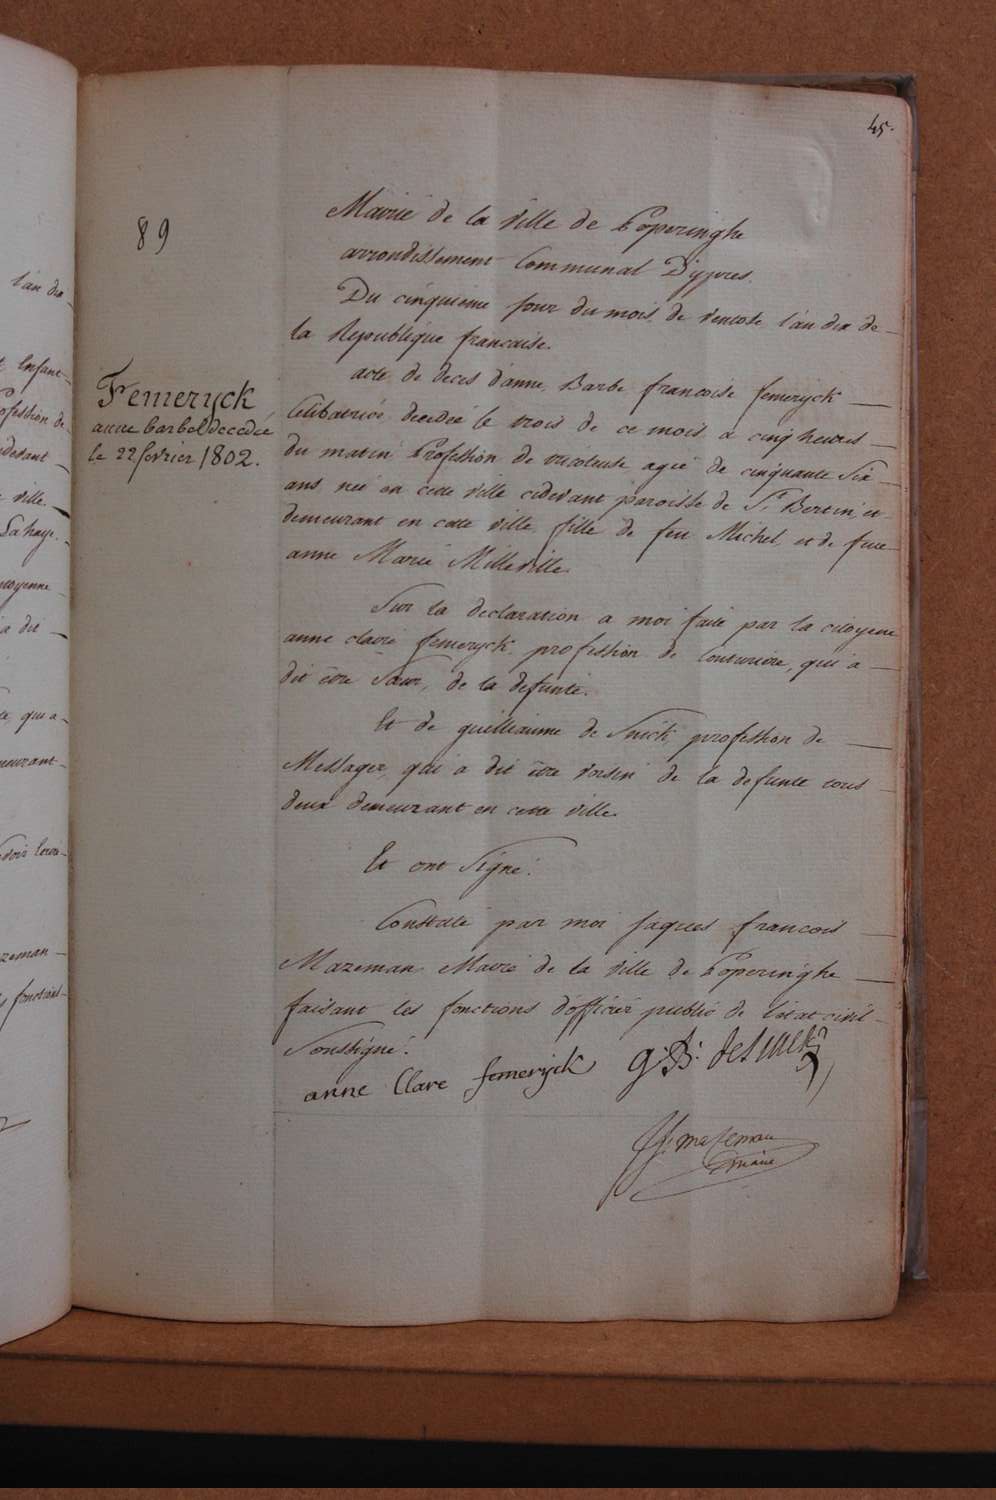 45.
89
Mairie de la Ville de Poperinghe
arrondissement Communal D'ypres.
Du cinquieme jour du mois de ventose l'an dix de
la Republique francaise.
acte de deces d'anne Barbe francoise femeryck
Celibatrice decedeé le trois de ce mois a cinq heures
du matin Profession de tricoteuse ageé de cinquante Six
ans neé en cette ville cidevant paroisse de St. Bertin, et
demeurant en cette ville fille de feu Michel, et de feue
anne Marie Milleville.
Femeryck
anne barbe decedee
le 22 fevrier 1802.
Sur la declaration a moi faite par la citoyene
anne claire femeryck profession de Couturiere, qui a
dit être Sœur, de la defunte.
Et de guilliaume de Snick profession de
Messager, qui a dit être voisin de la defunte tous
deux demeurant en cette ville.
Et ont Signé.
Constaté par moi Jaques francois
Mazeman Maire de la ville de Poperinghe
faisant les fonctions d'officier public de l'état civil
Soussigné.
anne Clare femerijck
g: B: desnick
mazeman
maire
l'an dix
Enfant
profession de
cidevant
ville
Lahaye.
citoyenne
a dit
qui a
demeurant
mazeman
fonctions